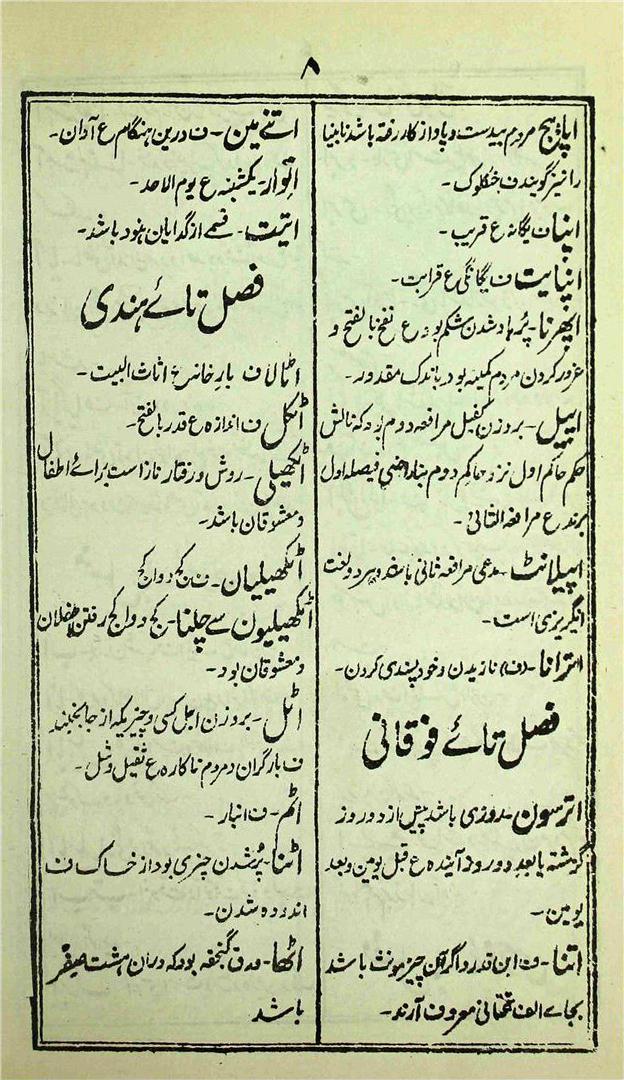 ۸
اپاہج مردم بیدست و پا و از کار رفتہ باشد نابینا
را نیز گویند ف خنگلوک۔
اپنا ف یگانہ ع قریب۔
اپنایت ف یگانگی ع قرابت۔
اپھرنا۔ پُر باد شدن شکم بود ع نفخ بالفتح و
غرور کردن مردم کمینہ بود باندک مقدور۔
اپیل۔ بروزن کفیل مرافعہ دوم بود کہ نالش
حکم حاکم اول نزد حاکم دوم بناراضی فیصلہ اول
برند ع مرافعہ الثانی۔
اپیلانٹ۔ مدعی مرافعہ ثانی باشد و ہر دو لغت
انگریزی است۔
اترانا۔ (ف) نازیدن و خود پسندی کردن۔
فصل تائے فوقانی
اترسون۔ روزی باشد پیش از دو روز
گزشتہ یا بعد دو روز آیندہ ع قبل یومین و بعد
یومین۔
اتنا۔ ف این قدر و اگر آن چیز مونث باشد
بجاے الف تحتانی معروف آرند۔
اتنے مین۔ ف درین ہنگام ع آوان۔
اتوار۔ یکشنبہ ع یوم الاحد۔
اتیت۔ قسمے از گدایان ہنود باشد۔
فصل تائے ہندی
اٹالا ف بار خانہ ع اثاث البیت۔
اٹکل ف اندازہ ع قدر بالفتح۔
اٹکھیلی۔ روش و رفتار ناز است برائے اطفال
و معشوقان باشد۔
اٹکھیلیان۔ ف کج و واکج
اٹکھیلیون سے چلنا۔ کج و واکج رفتن طفلان
و معشوقان بود۔
اٹل۔ بروزن اجل کسی و چیزیکہ از جا نجنبد
ف بارگران و مردم ناکارہ ع ثقیل و شل۔
اٹم۔ ف انبار۔
اٹنا۔ پُر شدن چیزی بود از خاک ف
اندودہ شدن۔
اٹھا۔ ورق گنجفہ بود کہ دران ہشت صفر
باشد